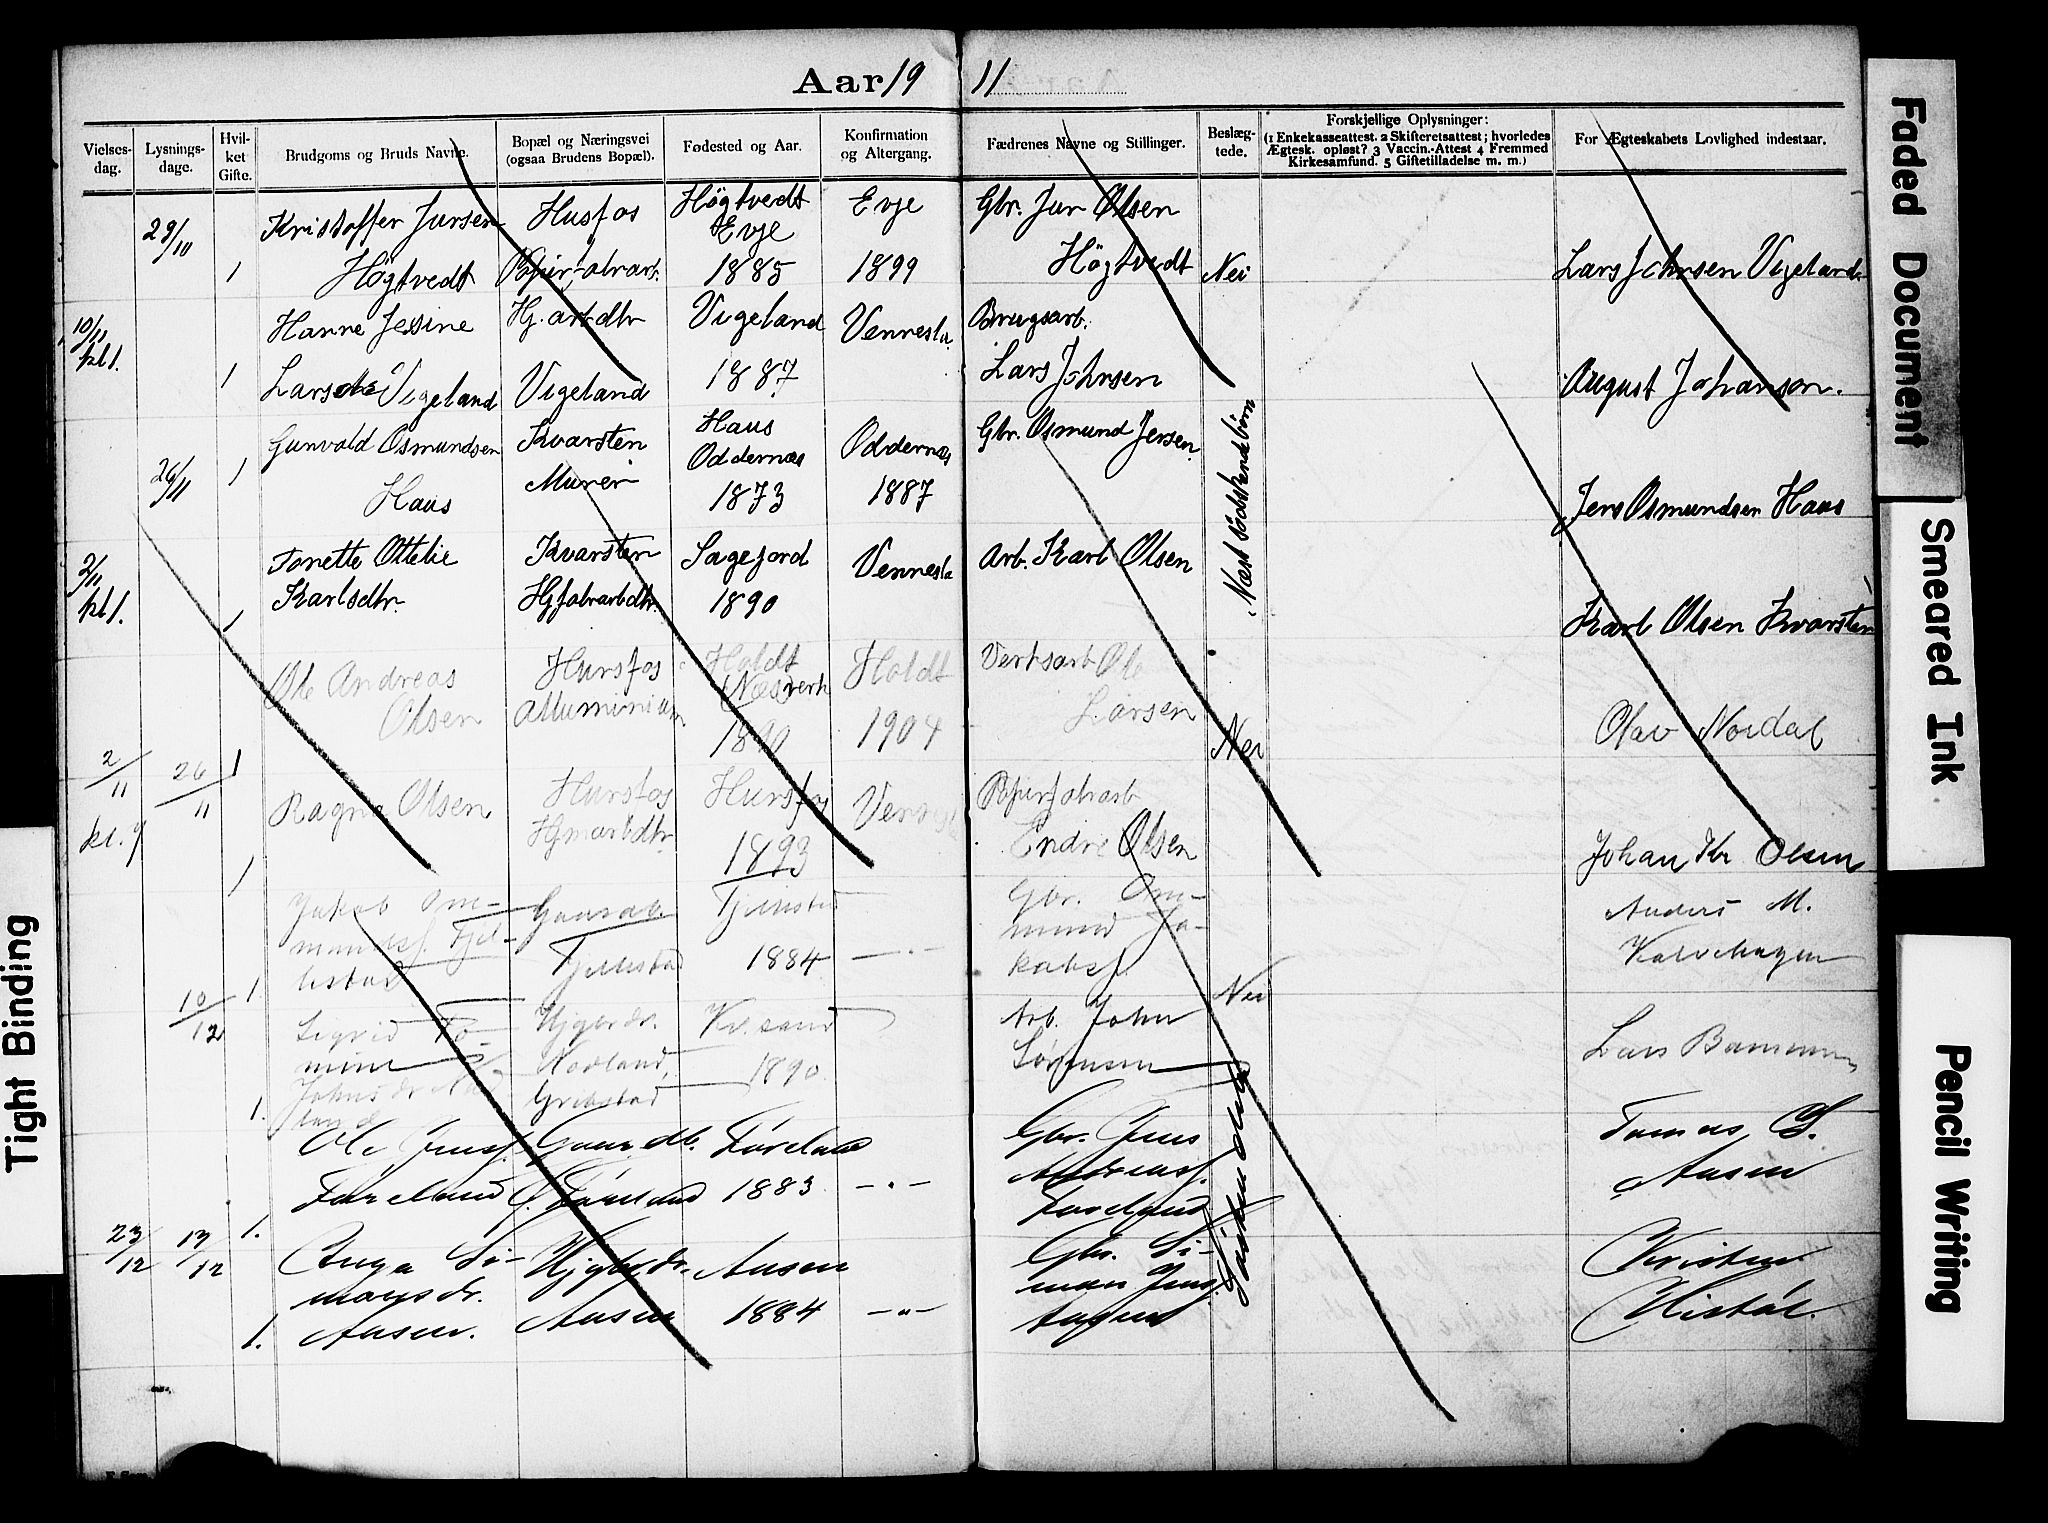 Aar 19 11
Vielses-
dag.
Lysnings-
dage.
Hvil-
ket
Gifte.
Brudgoms og Bruds Navne.
Bopæl og Næringsvei
(ogsaa Brudens Bopæl).
Fødested og Aar.
Konfirmation
og Altergang.
Fædrenes Navne og Stillinger.
Beslæg-
tede.
Forskjellige Oplysninger:
(1 Enkekasseattest. 2 Skifteretsattest; hvorledes
Ægtesk. opløst? 3 Vaccin.-Attest 4 Fremmed
Kirkesamfund. 5 Giftetilladelse m. m.)
For Ægteskabets Lovlighed indestaar.
29/10
1
Kristoffer Jursen
Høgtvedt
Husfos
Høgtvedt
Evje
1885
Evje
1899
Gbr. Jur Olsen
Høgtvedt
Nei
Lars Johnsen Vigeland
10/11
kl 1.
1
Hanne Jessine
Vigeland
Hj. arb dtr
Vigeland
Vigeland
1887
Vennesla
Brugsarb.
Lars Johnsen
August Johanson.
26/11
1
Gunvald Osmundsen
Haus
Kvarsten
Murer
Haus
Oddernæs
1873
Oddernæs
1887
Gbr. Osmund Jersen
Næst södskendebörn
Jens Osmundsen Haus
kl 1.
1
Tonette Ottelie
Karlsdtr.
Kvarsten
Hj fabrarb dtr.
Sagejord
1890
Vennesla
Arb. Karl Olsen
Karl Olsen Kvarsten
1
Ole Andreas
Olsen
Hunsfos
Aluminium
Holdt
Næsverk
1890
Holdt
1904
Verksarb Ole
Larsen
Nei
Olav Nordal
2/11
kl. 7
26/11
1
Ragna Olsen
Hunsfos
Hj m arb dtr
Hunsfos
1893
Papirfabrarb
Endre Olsen
Johan Kr Olsen
1.
Jakob Om-
mundsf. Fjel-
lestad
Fjellestad
Fjellestad
1884
—"—
Gbr. Om-
mund Ja-
kobsf.
Nei
Anders M.
Kalvehagen
10/12
1.
Sigrid To-
mine
Johnsdr.
Hjgbrdr.
Kr.sand
1890
Arb. John
Sørensen
Lars
1.
Ole Jensf.
Føreland
Gaardb.
Føreland
Føreland
1883
—"—
Gbr. Jens
Andreasf.
Føreland
Tomas S.
Aasen
23/12
13/12
1.
Anga Si-
monsdr.
Aasen.
Hjgbrdr.
Aasen
Aasen
1884
—"—
Gbr. Si-
mon Jensf.
Aasen
Kristen
Histøl.
Faded Document
Smeared Ink
Tight Binding
Pencil Writing